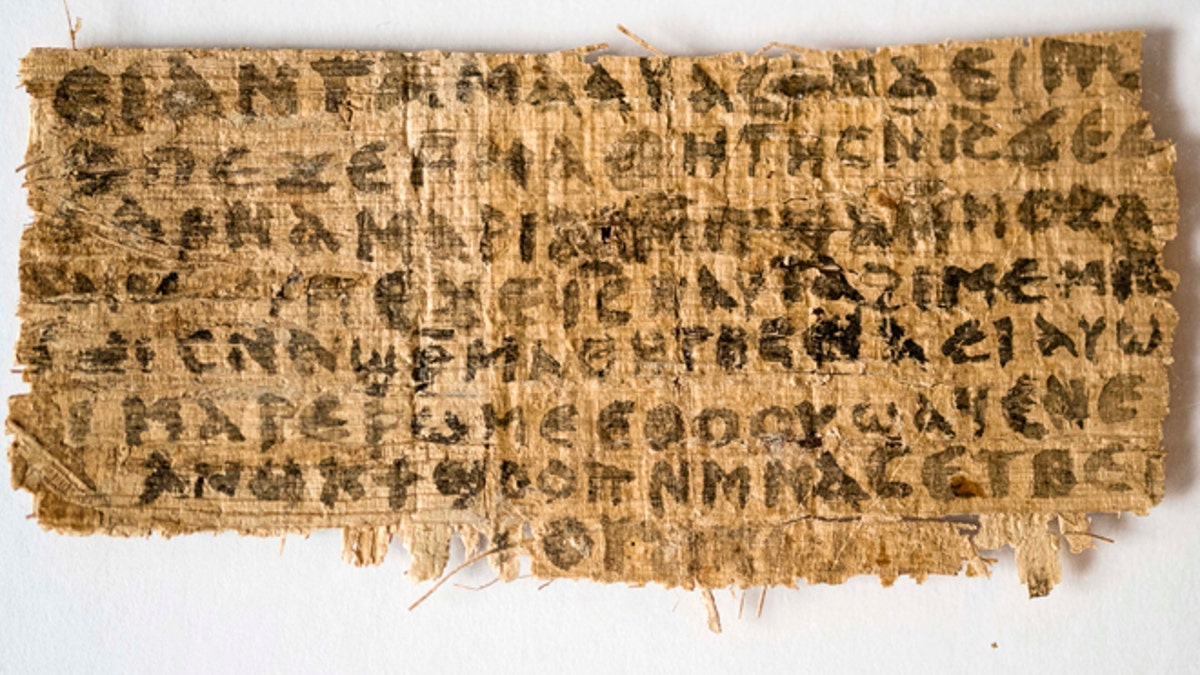 ⲉⲓⲁⲛⲧⲁⲙⲁⲁⲩⲁⲥϯⲛⲁⲉⲓⲡ
ⲡⲉϫⲉⲙⲙⲁⲑⲏⲧⲏⲥⲛⲓ̅ⲥ̅ϫⲉⲥ
ⲁⲣⲛⲁⲙⲁⲣⲓⲁⲙⲙⲡϣⲁⲙⲙⲟⲥⲁ
ⲡⲉϫⲉⲓ̅ⲥ̅ⲛⲁⲩⲧⲁϩⲓⲙⲉⲙⲛ
ⲥⲛⲁϣⲣ̅ⲙⲁⲑⲏⲧⲏⲥⲛⲁⲉⲓⲁⲩⲱ
ⲓⲙⲁⲣⲉⲣⲱⲙⲉⲉⲑⲟⲟⲩϣⲁϥⲉⲛⲉ
ⲁⲛⲟⲕϯϣⲟⲟⲡⲛⲙⲙⲁⲥⲉⲧⲃⲉⲡ